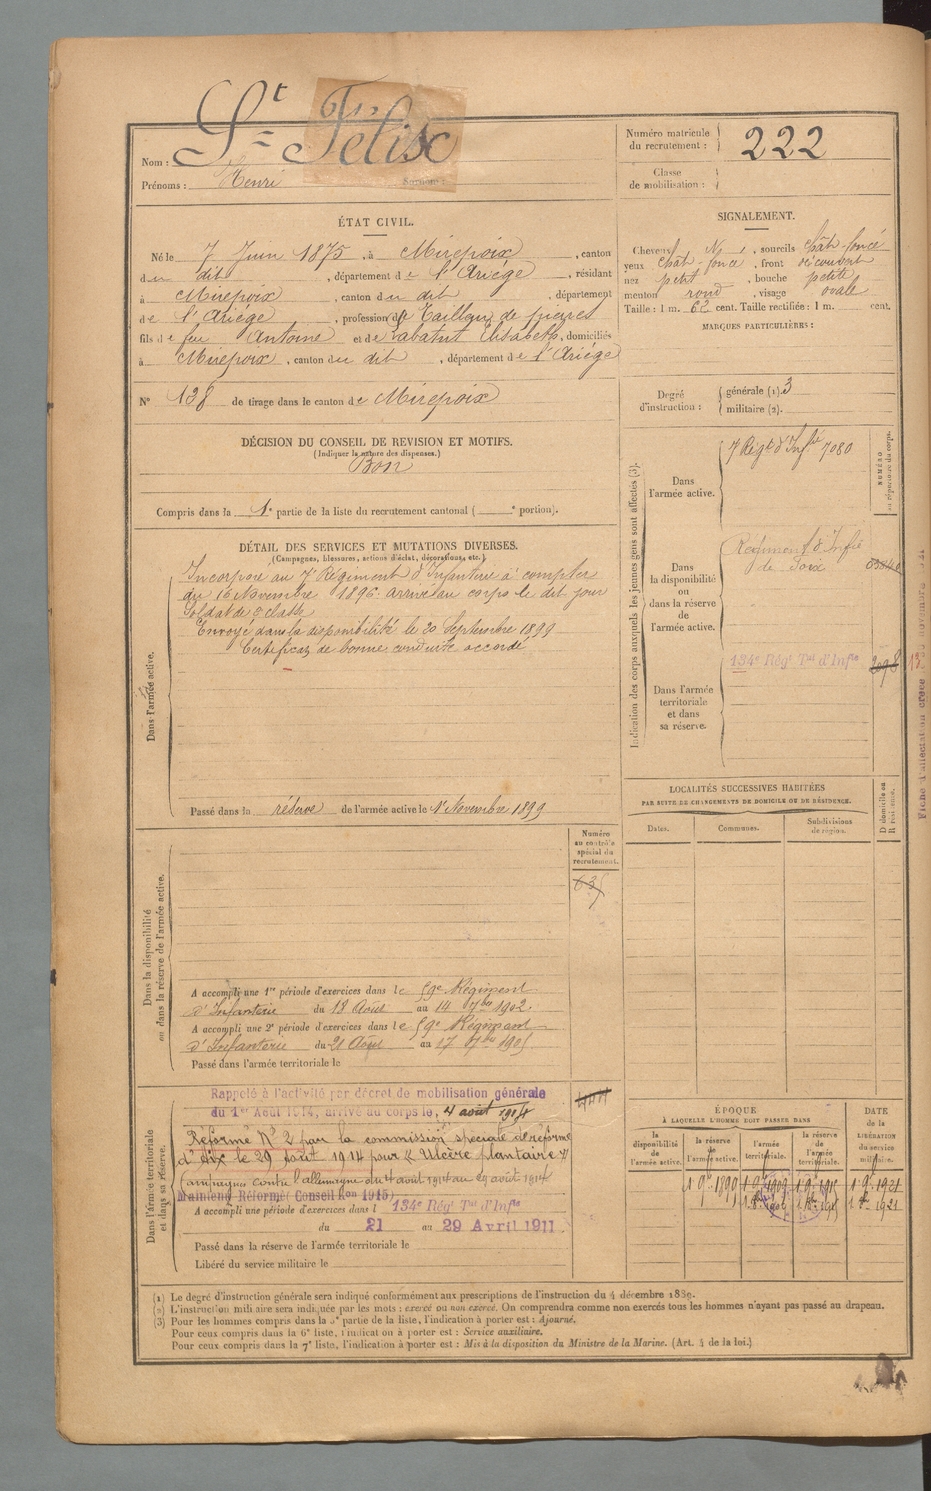 St Félix
Nom :
Prénoms : Henri
Surnom :
Numéro matricule
du recrutement : 222
Classe
de mobilisation :
ÉTAT CIVIL.
Né le 7 Juin 1875, à Mirepoix, canton
du dit, département de l'Ariège, résidant
à Mirepoix, canton du dit, département
de l'Ariège, profession de Tailleur de pierres
fils de feu Antoine et de Labatut Elisabeth, domiciliés
à Mirepoix, canton du dit, département de l'Ariège
N° 138 de tirage dans le canton de Mirepoix
SIGNALEMENT.
Cheveux chât-foncé, sourcils chât-foncé
yeux chât-foncé, front découvert
nez petit, bouche petite
menton rond, visage ovale
Taille : 1 m. 62 cent. Taille rectifiée : 1 m. cent.
MARQUES PARTICULIÈRES :
Degré
d'instruction :
générale (1). 3
militaire (2).
DÉCISION DU CONSEIL DE REVISION ET MOTIFS.
(Indiquer la nature des dispenses.)
Bon
Compris dans la 1e partie de la liste du recrutement cantonal ( e portion).
DÉTAIL DES SERVICES ET MUTATIONS DIVERSES.
(Campagnes, blessures, actions d'éclat, décorations, etc.)
Dans l'armée active.
Incorporé au 7e Régiment d'Infanterie à compter
du 16 Novembre 1896 arrivé au corps le dit jour
Soldat de 2e classe
Envoyé dans la disponibilité le 20 Septembre 1899
Certificat de bonne conduite accordé
Passé dans la réserve de l'armée active le 1er Novembre 1899
Indication des corps auxquels les jeunes gens sont affectés (3).
NUMÉRO
au répertoire du corps.
Dans
l'armée active.
7 Régt d'Infie 7080
Dans
la disponibilité
ou
dans la réserve
de
l'armée active.
Régiment d'Infie
de Foix
Dans l'armée
territoriale
et dans
sa réserve.
134e Régt Tal d'Infie
LOCALITÉS SUCCESSIVES HABITÉES
PAR SUITE DE CHANGEMENTS DE DOMICILE OU DE RÉSIDENCE.
Dates.
Communes.
Subdivisions
de région.
D domicile ou
R résidence.
Numéro
au contrôle
spécial du
recrutement.
Dans la disponibilité
ou dans la réserve de l'armée active.
A accompli une 1re période d'exercices dans le 59e Régiment
d'Infanterie du 18 Août au 14 7bre 1902.
A accompli une 2e période d'exercices dans le 59e Régiment
d'Infanterie du 21 Août au 17 7bre 1905
Passé dans l'armée territoriale le
Dans l'armée territoriale
et dans sa réserve.
Rappelé à l'activité par décret de mobilisation générale
du 1er Août 1914, arrivé au corps le, 4 août 1914
Réformé N° 2 par la commission spéciale de réforme
d'Aix le 29 août 1914 pour « Ulcère plantaire »
Campagne contre l'allemagne du 4 août 1914 au 29 août 1914
Maintenu Réformé (Conseil Ron 1915)
A accompli une période d'exercices dans l 134e Régt Tal d'Infie
du 21 au 29 Avril 1911
Passé dans la réserve de l'armée territoriale le
Libéré du service militaire le
ÉPOQUE
À LAQUELLE L'HOMME DOIT PASSER DANS
la
disponibilité
de
l'armée active.
la réserve
de
l'armée active.
l'armée
territoriale.
la réserve
de
l'armée
territoriale.
DATE
de la
LIBÉRATION
du service
militaire.
(1) Le degré d'instruction générale sera indiqué conformément aux prescriptions de l'instruction du 4 décembre 1889.
(2) L'instruction militaire sera indiquée par les mots : exercé ou non exercé. On comprendra comme non exercés tous les hommes n'ayant pas passé au drapeau.
(3) Pour les hommes compris dans la 5e partie de la liste, l'indication à porter est : Ajourné.
Pour ceux compris dans la 6e liste, l'indication à porter est : Service auxiliaire.
Pour ceux compris dans la 7e liste, l'indication à porter est : Mis à la disposition du Ministre de la Marine. (Art. 4 de la loi.)